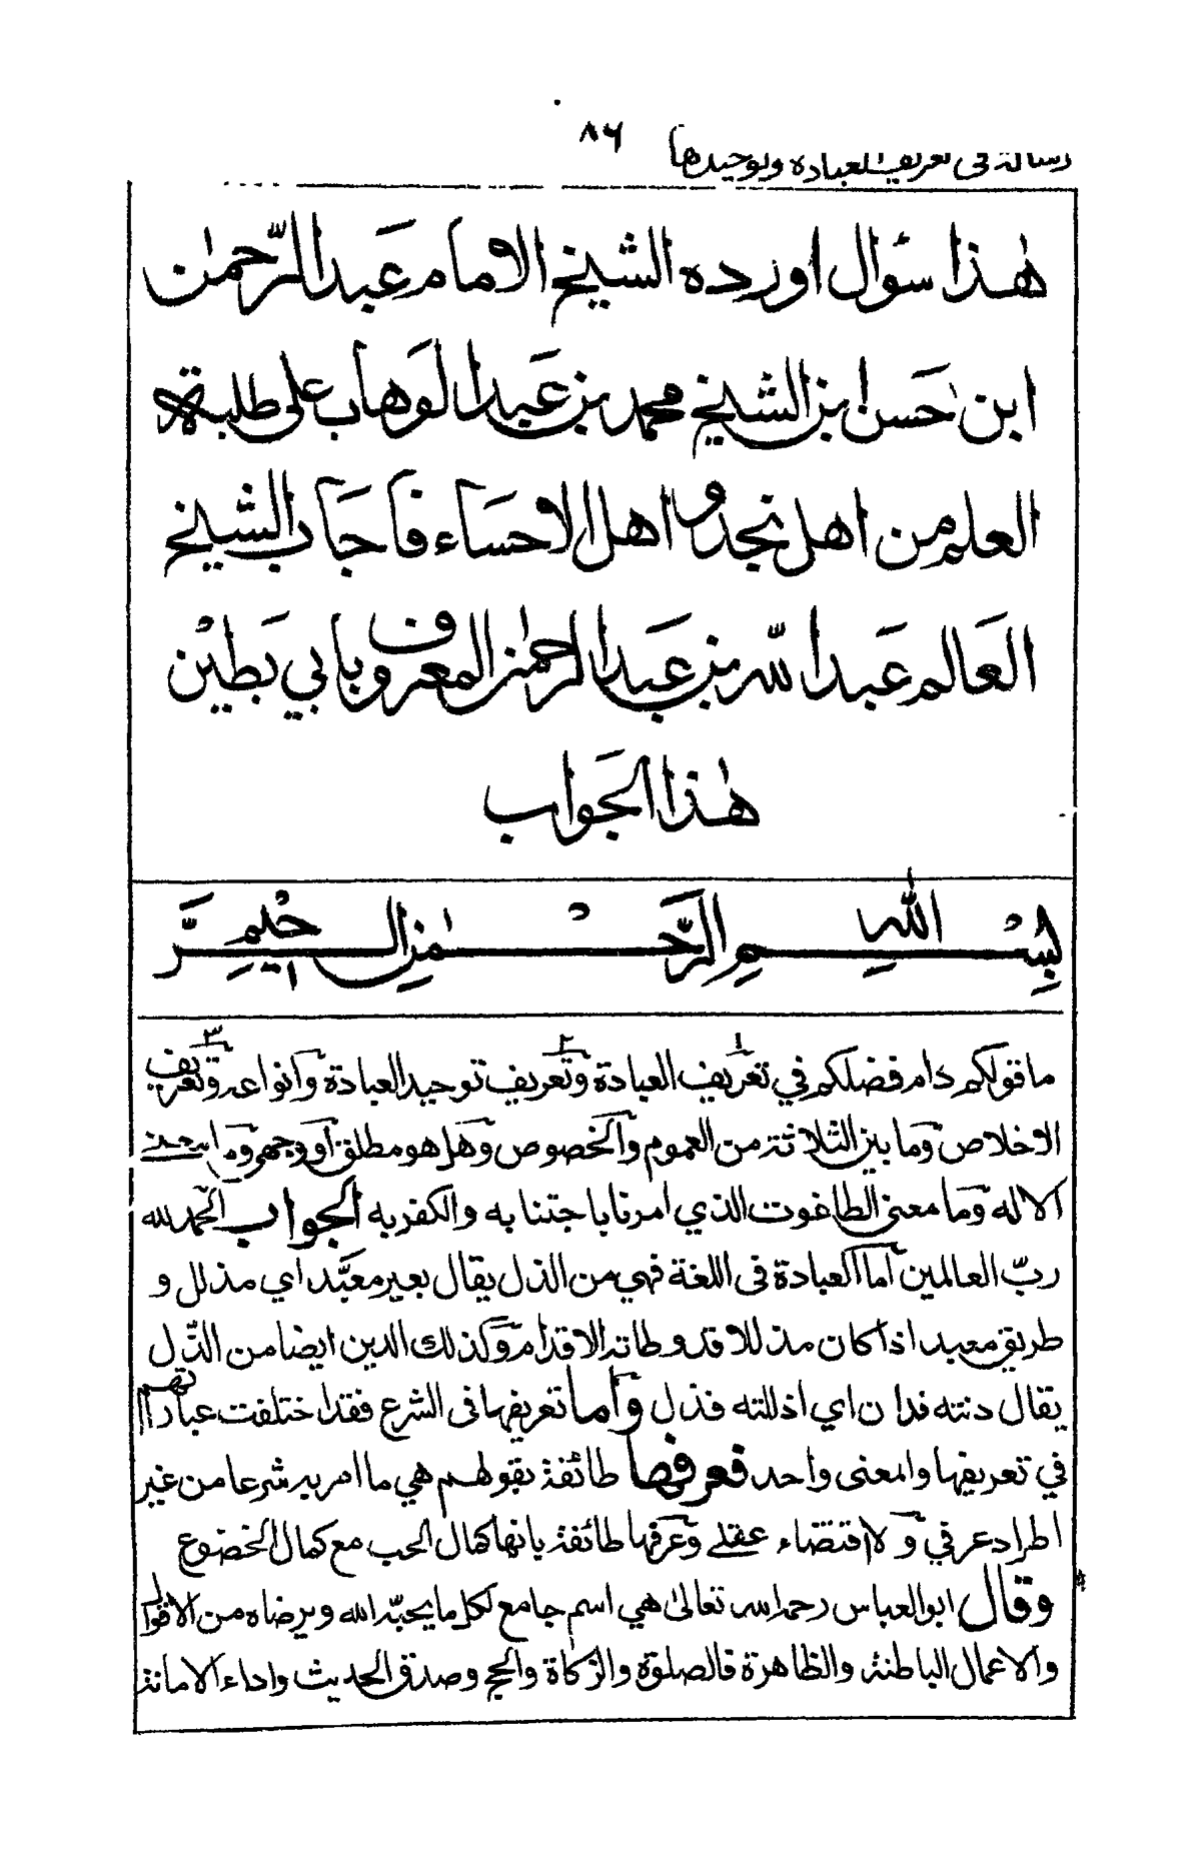 رسالة في تعريف العبادة وتوحيدها ٨٦
هٰذا سؤال اورده الشيخ الامام عبد الرّحمٰن
ابن حَسن ابن الشيخ محمد بن عَبد الوَهاب على طلبة
العلم من اهل نجد و اهل الاحسَاء فأجَاب الشيخ
العَالم عَبد اللّٰه بن عَبد الرحمٰن المعروف بابي بَطين
هٰذا الجَواب
بِسْم اللهِ الرَّحْمٰنِ الرَّحيْمِ
ما قولكم دام فضلكم في تعريف العبادة ١ وتعريف توحيد العبادة ٢ وانواعه وتعريف ٣
الاخلاص وما بين الثلاثة من العموم والخصوص وهل هو مطلق او وجهي وما معنى
الاله وما معنى الطاغوت الذي امرنا باجتنابه والكفر به الجواب الحمد لله
ربّ العالمين اما العبادة فى اللغة فهي من الذل يقال بعير معبَّد اي مذلل و
طريق معبد اذا كان مذللا قد وطاته الاقدام وكذلك الدين ايضا من الذّل
يقال دنته فدان اي اذللته فذل واما تعريفها فى الشرع فقد اختلفت عباراتهم
في تعريفها والمعنى واحد فعرفها طائفة بقولهم هي ما امر به شرعا من غير
اطراد عرفي ولا اقتضاء عقلي وعرفها طائفة بانها كمال الحب مع كمال الخضوع
وقال ابو العباس رحمه الله تعالىٰ هي اسم جامع لكل ما يحبّه الله ويرضاه من الاقوال
والاعمال الباطنة والظاهرة فالصلوٰة والزكاة والحج وصدق الحديث واداء الامانة